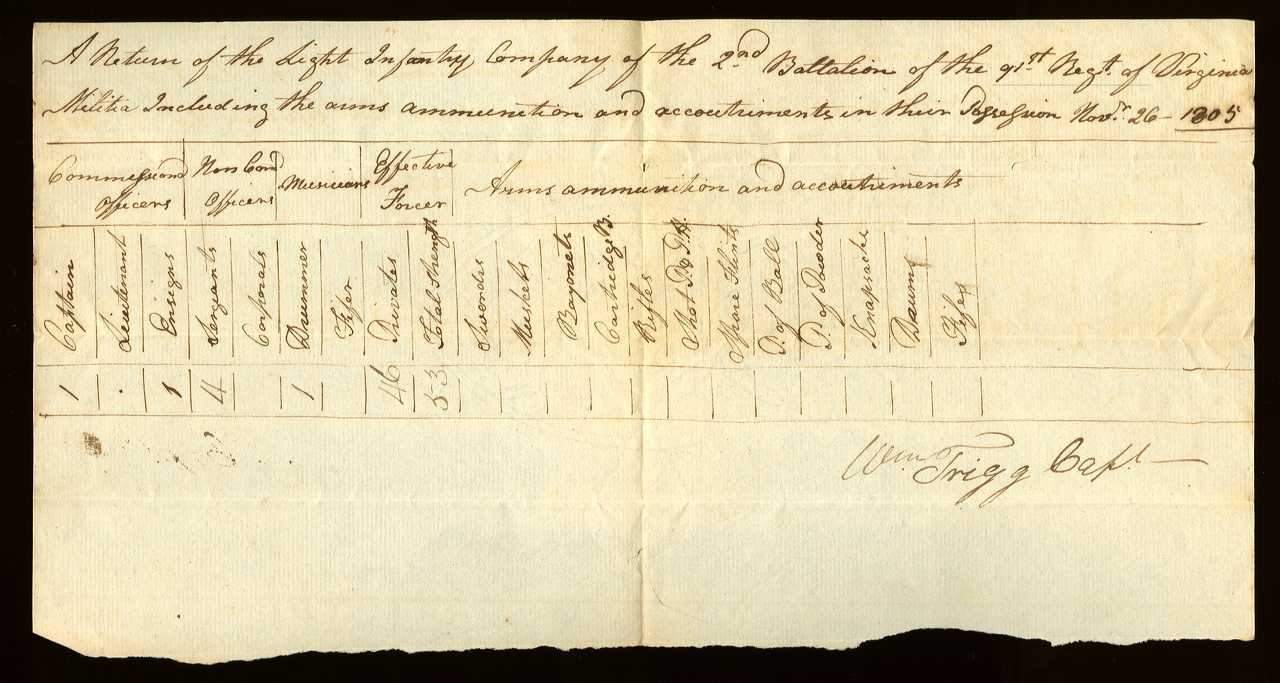 A Return of the Light Infantry Company of the 2nd Battalion of the 91st Regt. of Virginia
Militia Including the arms ammunition and accoutriments in their Possession Novr. 26 1805
Commissiond Officers
Non Comd Officers
Musicians
Effective Forcer
Arms ammunition and accoutriments
Captain
Lieutenant
Ensigns
Serjants
Corporals
Drummer
Fifer
Privates
Total Strength
Swords
Muskets
Bayonets
Cartridge B.
Rifles
Shot P. & P.H.
Spare Flints
P. of Ball
P. of Powder
Knapsacks
Drums
Fifes
1 . 1 4 1 46 53
Wm Trigg Capt